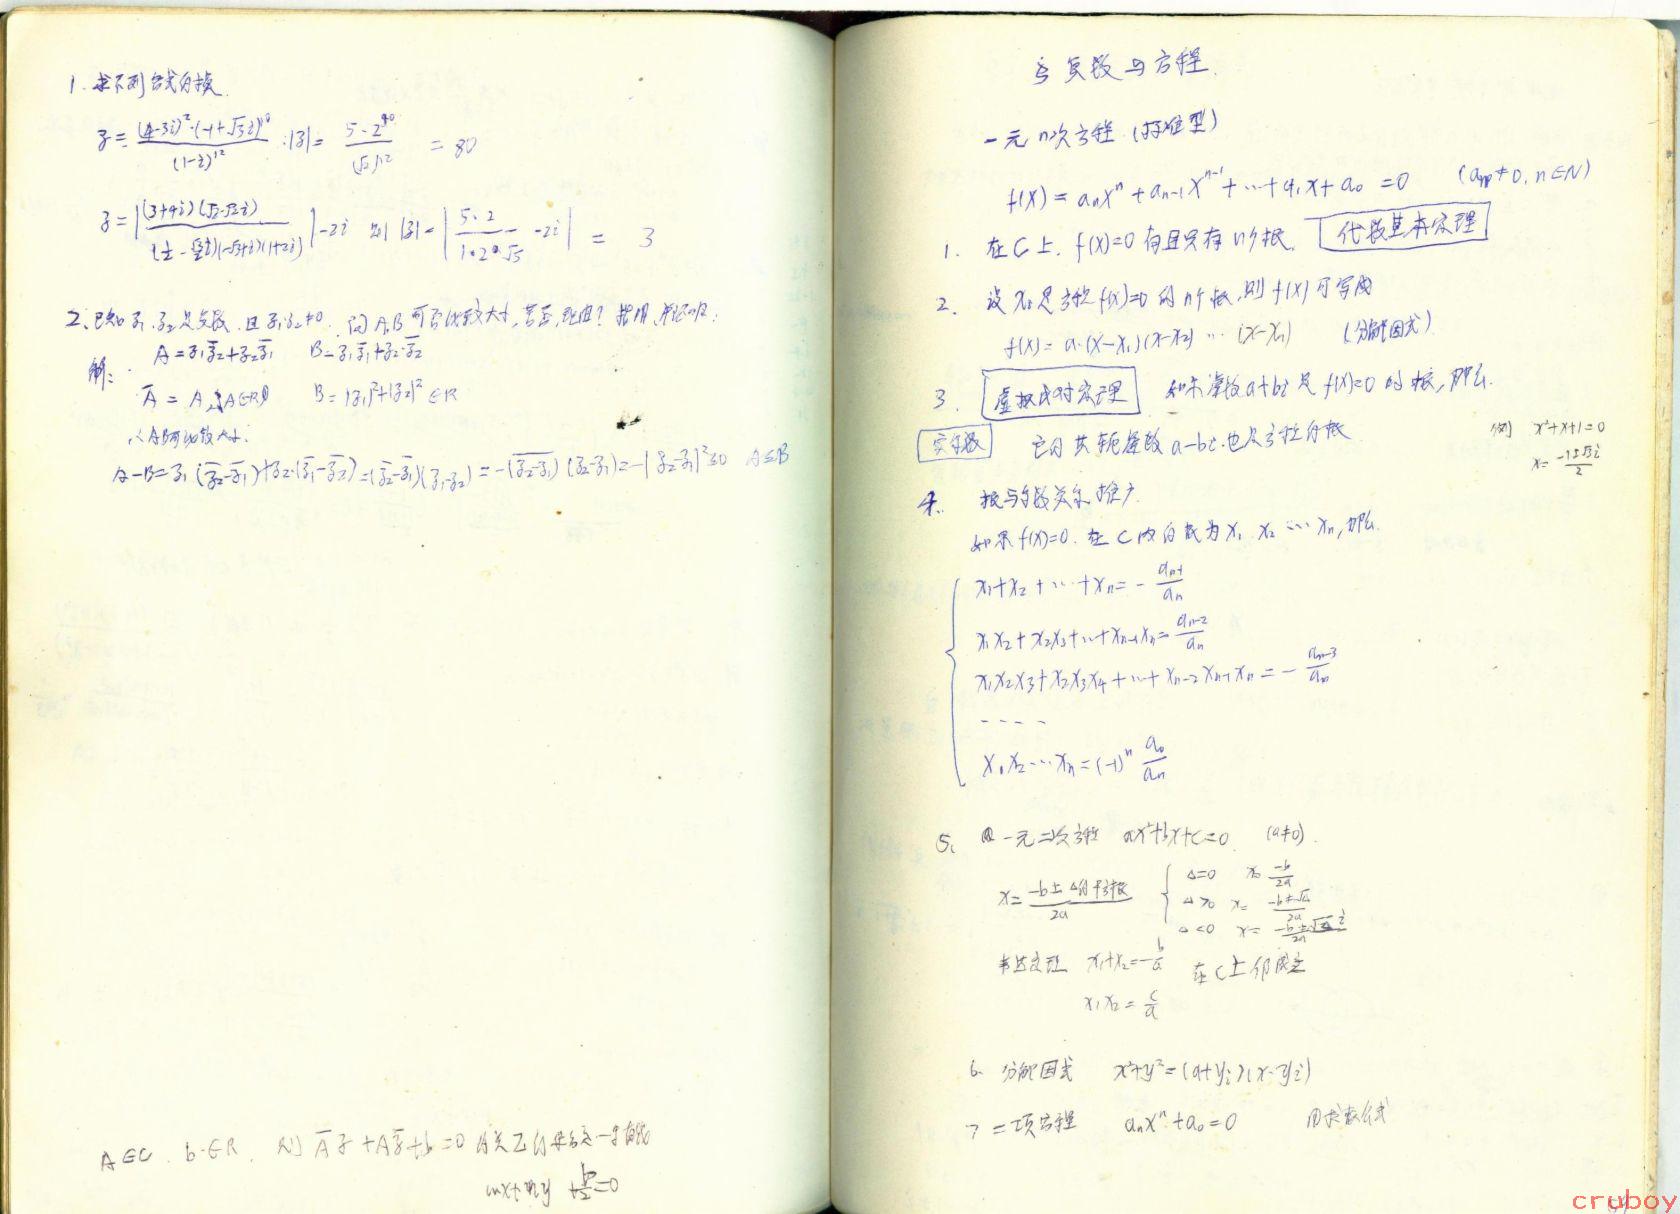 1. 求下列各式的模.
z = (4-3i)²·(-1+√3i)¹⁰ / (1-i)¹² · |z| = 5·2¹⁰ / (√2)¹² = 80
z = |(3+4i)(√2-√2i) / (½ - √3/2 i)(-√3+i)(1+2i)| - 2i 则 |z| = |5·2 / 1·2·√5 - 2i| = 3
2. 已知 z₁, z₂ 是复数, 且 z₁·z₂≠0, 问 A, B 可否比较大小, 若否, 理由? 若可, 并证明:
解: A = z₁z̄₂+z₂z̄₁ B = z₁z̄₁+z₂·z̄₂
Ā = A, ∴(A∈R) B = |z₁|²+|z₂|² ∈R
∴AB可比较大小.
A-B = z₁(z̄₂-z̄₁)+z₂·(z̄₁-z̄₂) = (z̄₂-z̄₁)(z₁-z₂) = -(z̄₂-z̄₁)(z₂-z₁) = -|z₂-z₁|²≤0 A≤B
A∈C, b∈R, 则 Āz+Az̄+b=0
mx+ny+b/2=0
§ 复数与方程.
一元n次方程 (标准型)
f(x) = aₙxⁿ + aₙ₋₁xⁿ⁻¹ + … + a₁x + a₀ = 0 (aₙ≠0, n∈N)
1. 在C上, f(x)=0 有且只有 n个根. 代数基本定理
2. 设 xᵢ 是方程 f(x)=0 的 n个根, 则 f(x) 可写成
f(x) = a·(x-x₁)(x-x₂) … (x-xᵢ) (分解因式)
3. 虚根成对定理 如果虚数 a+bi 是 f(x)=0 的根, 那么.
实系数 它的共轭虚数 a-bi 也是方程的根
例 x²+x+1=0
x = (-1±√3i)/2
4. 根与系数关系推广.
如果 f(x)=0. 在C内的根为 x₁ x₂ … xₙ, 那么.
x₁+x₂+…+xₙ = - aₙ₋₁/aₙ
x₁x₂+x₂x₃+…+xₙ₋₁xₙ = aₙ₋₂/aₙ
x₁x₂x₃+x₂x₃x₄+…+xₙ₋₂xₙ₋₁xₙ = - aₙ₋₃/aₙ
- - - -
x₁x₂…xₙ = (-1)ⁿ a₀/aₙ
5. 一元二次方程 ax²+bx+c=0. (a≠0).
x = (-b±Δ的平方根)/2a
Δ=0 x = -b/2a
Δ>0 x = (-b±√Δ)/2a
Δ<0 x = (-b±√-Δ i)/2a
韦达定理 x₁+x₂=-b/a 在C上仍成立
x₁x₂ = c/a
6. 分解因式 x²+y²=(x+yi)(x-yi)
7 二项方程 aₙxⁿ+a₀=0 用求根公式
cruboy